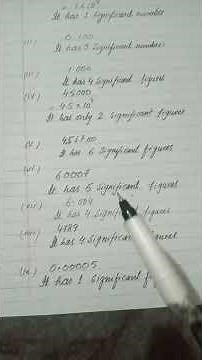 It has 1 significant number
(ii) 0.100
It has 3 significant number
(iii) 1.000
It has 4 significant figures
(iv) 45000
= 4.5×10⁴
It has only 2 significant figures
(v) 4567.00
It has 6 significant figures
(vi) 60007
It has 5 significant figures
(vii) 6.004
It has 4 significant figures
(viii) 4789
It has 4 significant figures
(ix) 0.00005
It has 1 significant